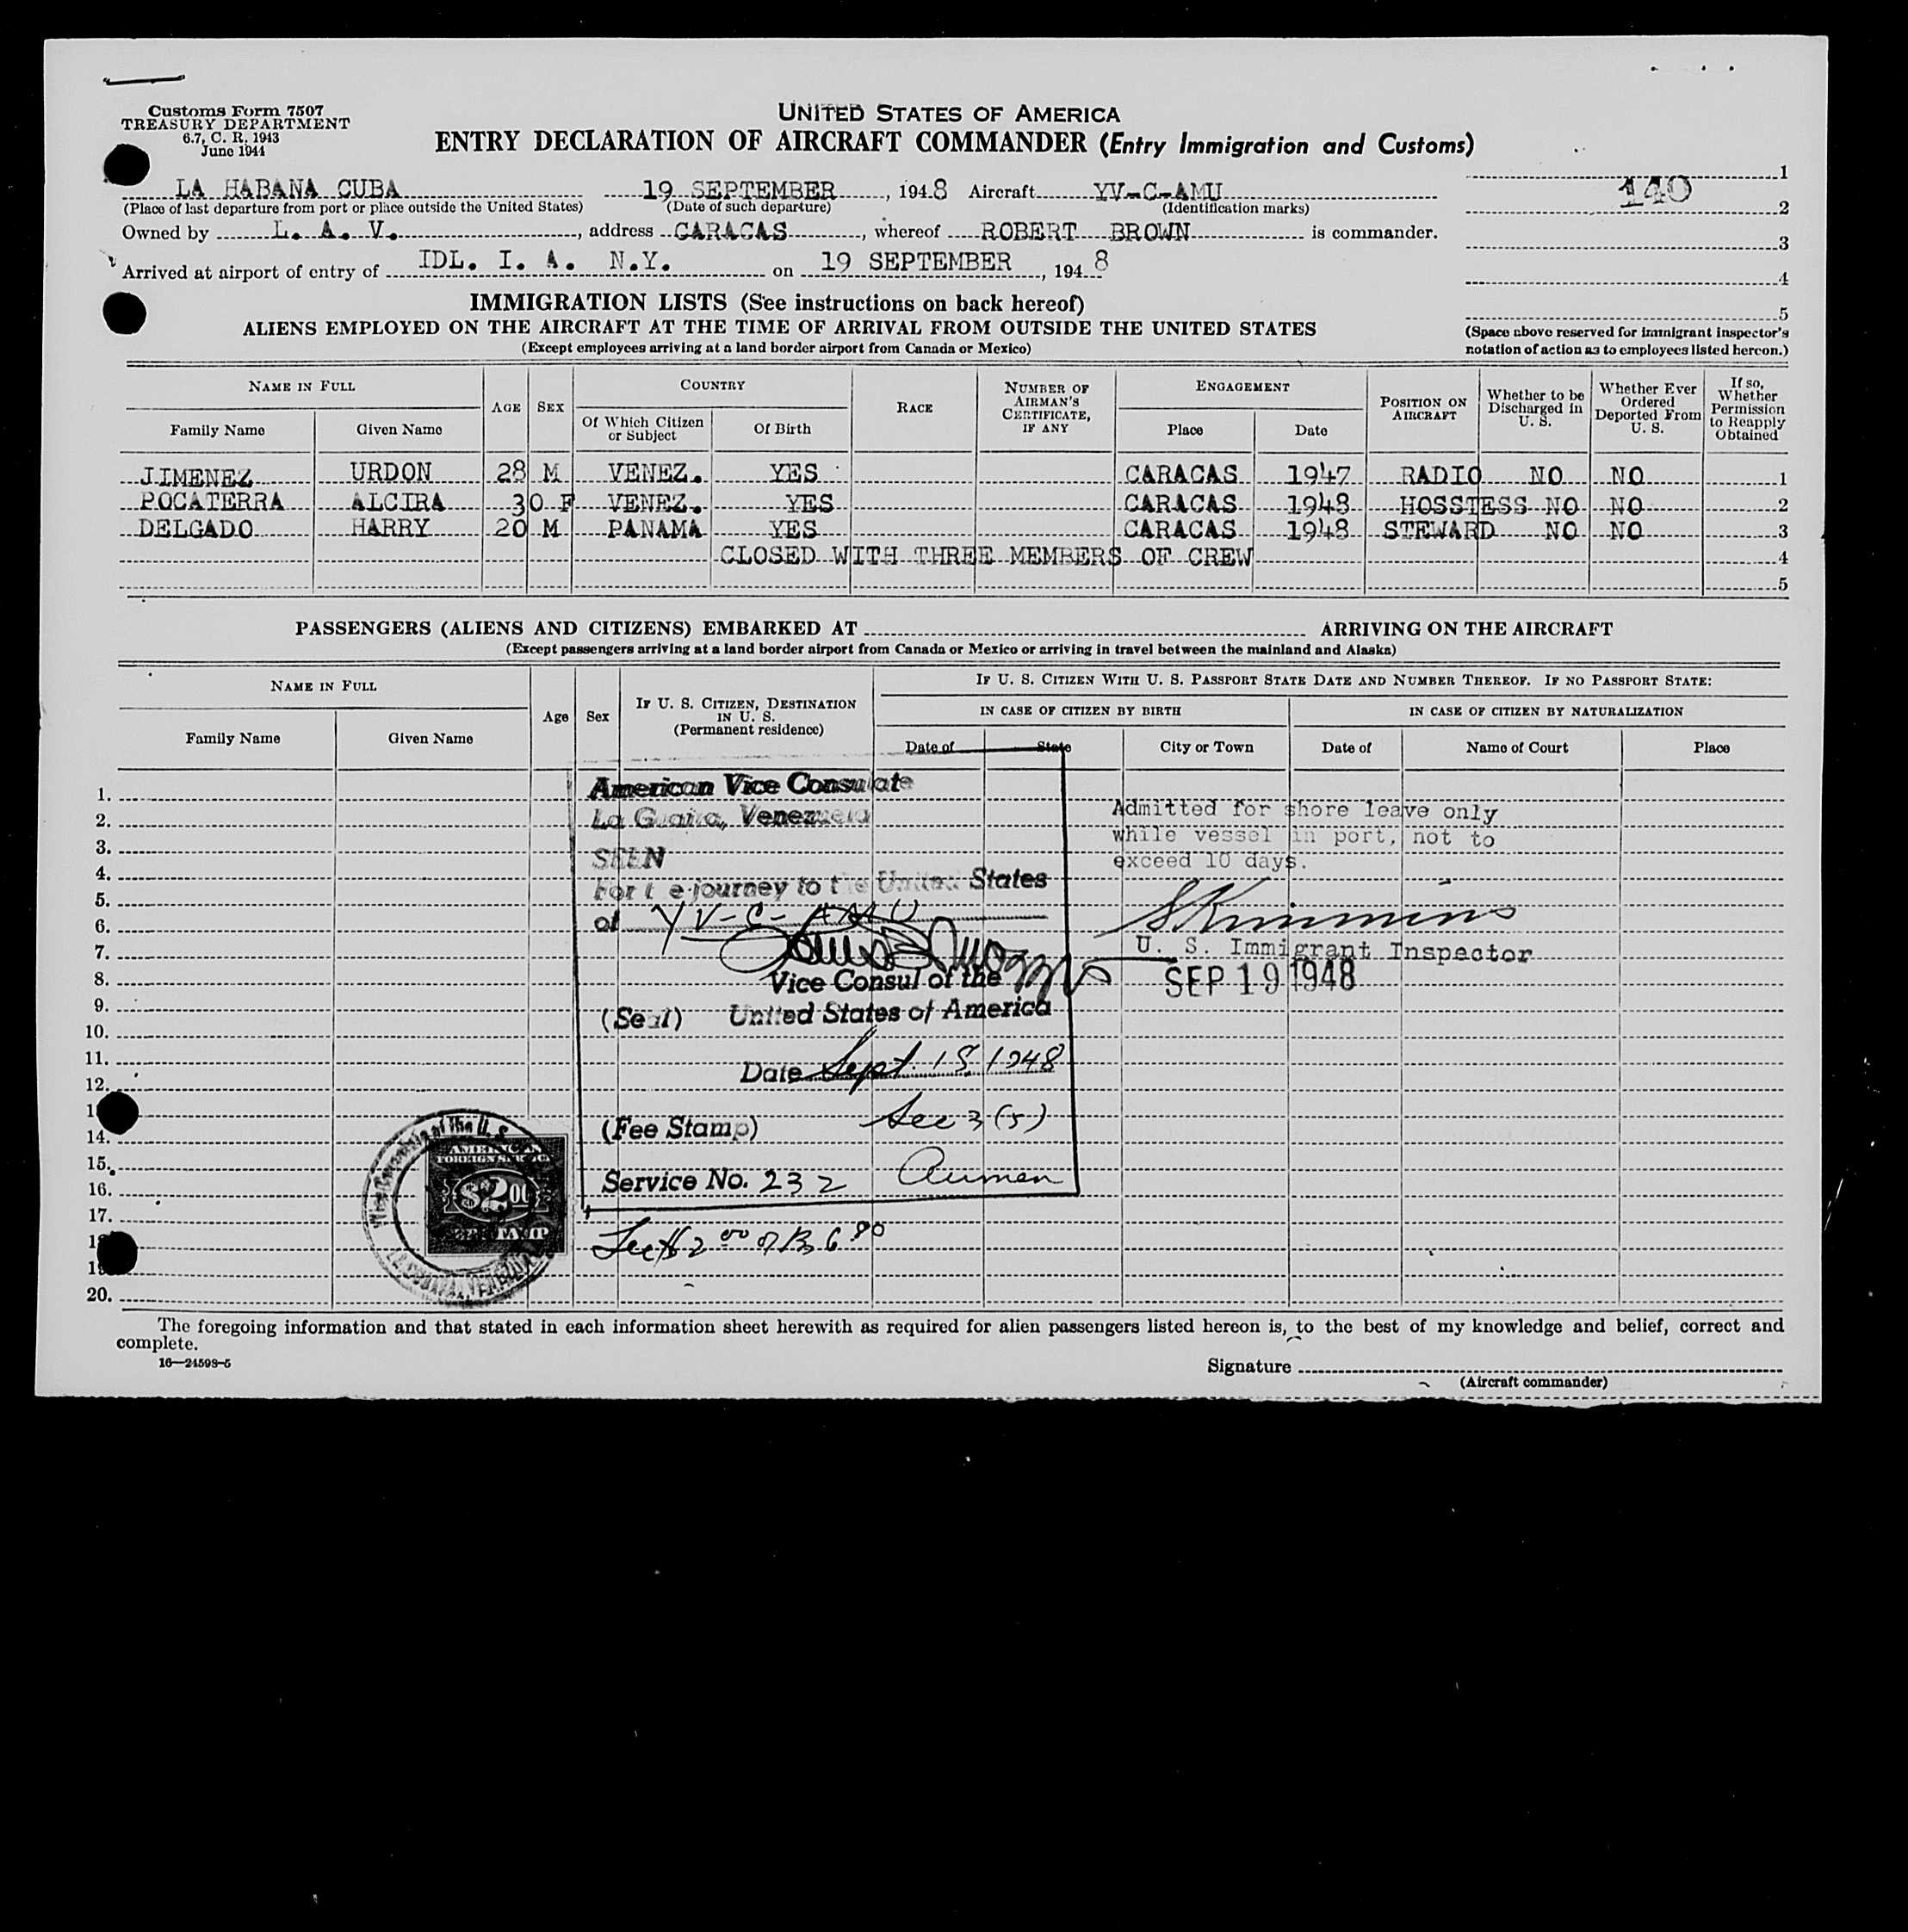 Customs Form 7507
TREASURY DEPARTMENT
6.7, C. R. 1943
June 1944
UNITED STATES OF AMERICA
ENTRY DECLARATION OF AIRCRAFT COMMANDER (Entry Immigration and Customs)
LA HABANA CUBA 19 SEPTEMBER, 1948 Aircraft YV-C-AMU
(Place of last departure from port or place outside the United States) (Date of such departure) (Identification marks)
Owned by L. A. V., address CARACAS, whereof ROBERT BROWN is commander.
Arrived at airport of entry of IDL. I. A. N.Y. on 19 SEPTEMBER, 1948
1
140
2
3
4
5
(Space above reserved for immigrant inspector's
notation of action as to employees listed hereon.)
IMMIGRATION LISTS (See instructions on back hereof)
ALIENS EMPLOYED ON THE AIRCRAFT AT THE TIME OF ARRIVAL FROM OUTSIDE THE UNITED STATES
(Except employees arriving at a land border airport from Canada or Mexico)
NAME IN FULL AGE SEX COUNTRY RACE NUMBER OF AIRMAN'S CERTIFICATE, IF ANY ENGAGEMENT POSITION ON AIRCRAFT Whether to be Discharged in U. S. Whether Ever Ordered Deported From U. S. If so, Whether Permission to Reapply Obtained
Family Name Given Name Of Which Citizen or Subject Of Birth Place Date
JIMENEZ URDON 28 M VENEZ. YES CARACAS 1947 RADIO NO NO 1
POCATERRA ALCIRA 30 F VENEZ. YES CARACAS 1948 HOSSTESS NO NO 2
DELGADO HARRY 20 M PANAMA YES CARACAS 1948 STEWARD NO NO 3
CLOSED WITH THREE MEMBERS OF CREW 4
5
PASSENGERS (ALIENS AND CITIZENS) EMBARKED AT ARRIVING ON THE AIRCRAFT
(Except passengers arriving at a land border airport from Canada or Mexico or arriving in travel between the mainland and Alaska)
NAME IN FULL Age Sex IF U. S. CITIZEN, DESTINATION IN U. S. (Permanent residence) IF U. S. CITIZEN WITH U. S. PASSPORT STATE DATE AND NUMBER THEREOF. IF NO PASSPORT STATE:
IN CASE OF CITIZEN BY BIRTH IN CASE OF CITIZEN BY NATURALIZATION
Family Name Given Name Date of State City or Town Date of Name of Court Place
1.
2.
3.
4.
5.
6.
7.
8.
9.
10.
11.
12.
14.
15.
16.
17.
20.
American Vice Consulate
La Guaira, Venezuela
SEEN
For the journey to the United States
of YV-C-AMU
Vice Consul of the
(Seal) United States of America
Date Sept. 18, 1948
(Fee Stamp) Sec 3 (5)
Service No. 232
Admitted for shore leave only
while vessel in port, not to
exceed 10 days.
U. S. Immigrant Inspector
SEP 19 1948
AMERICAN
FOREIGN SERVICE
$2.00
FEE STAMP
The foregoing information and that stated in each information sheet herewith as required for alien passengers listed hereon is, to the best of my knowledge and belief, correct and
complete.
16—24598-5
Signature
(Aircraft commander)